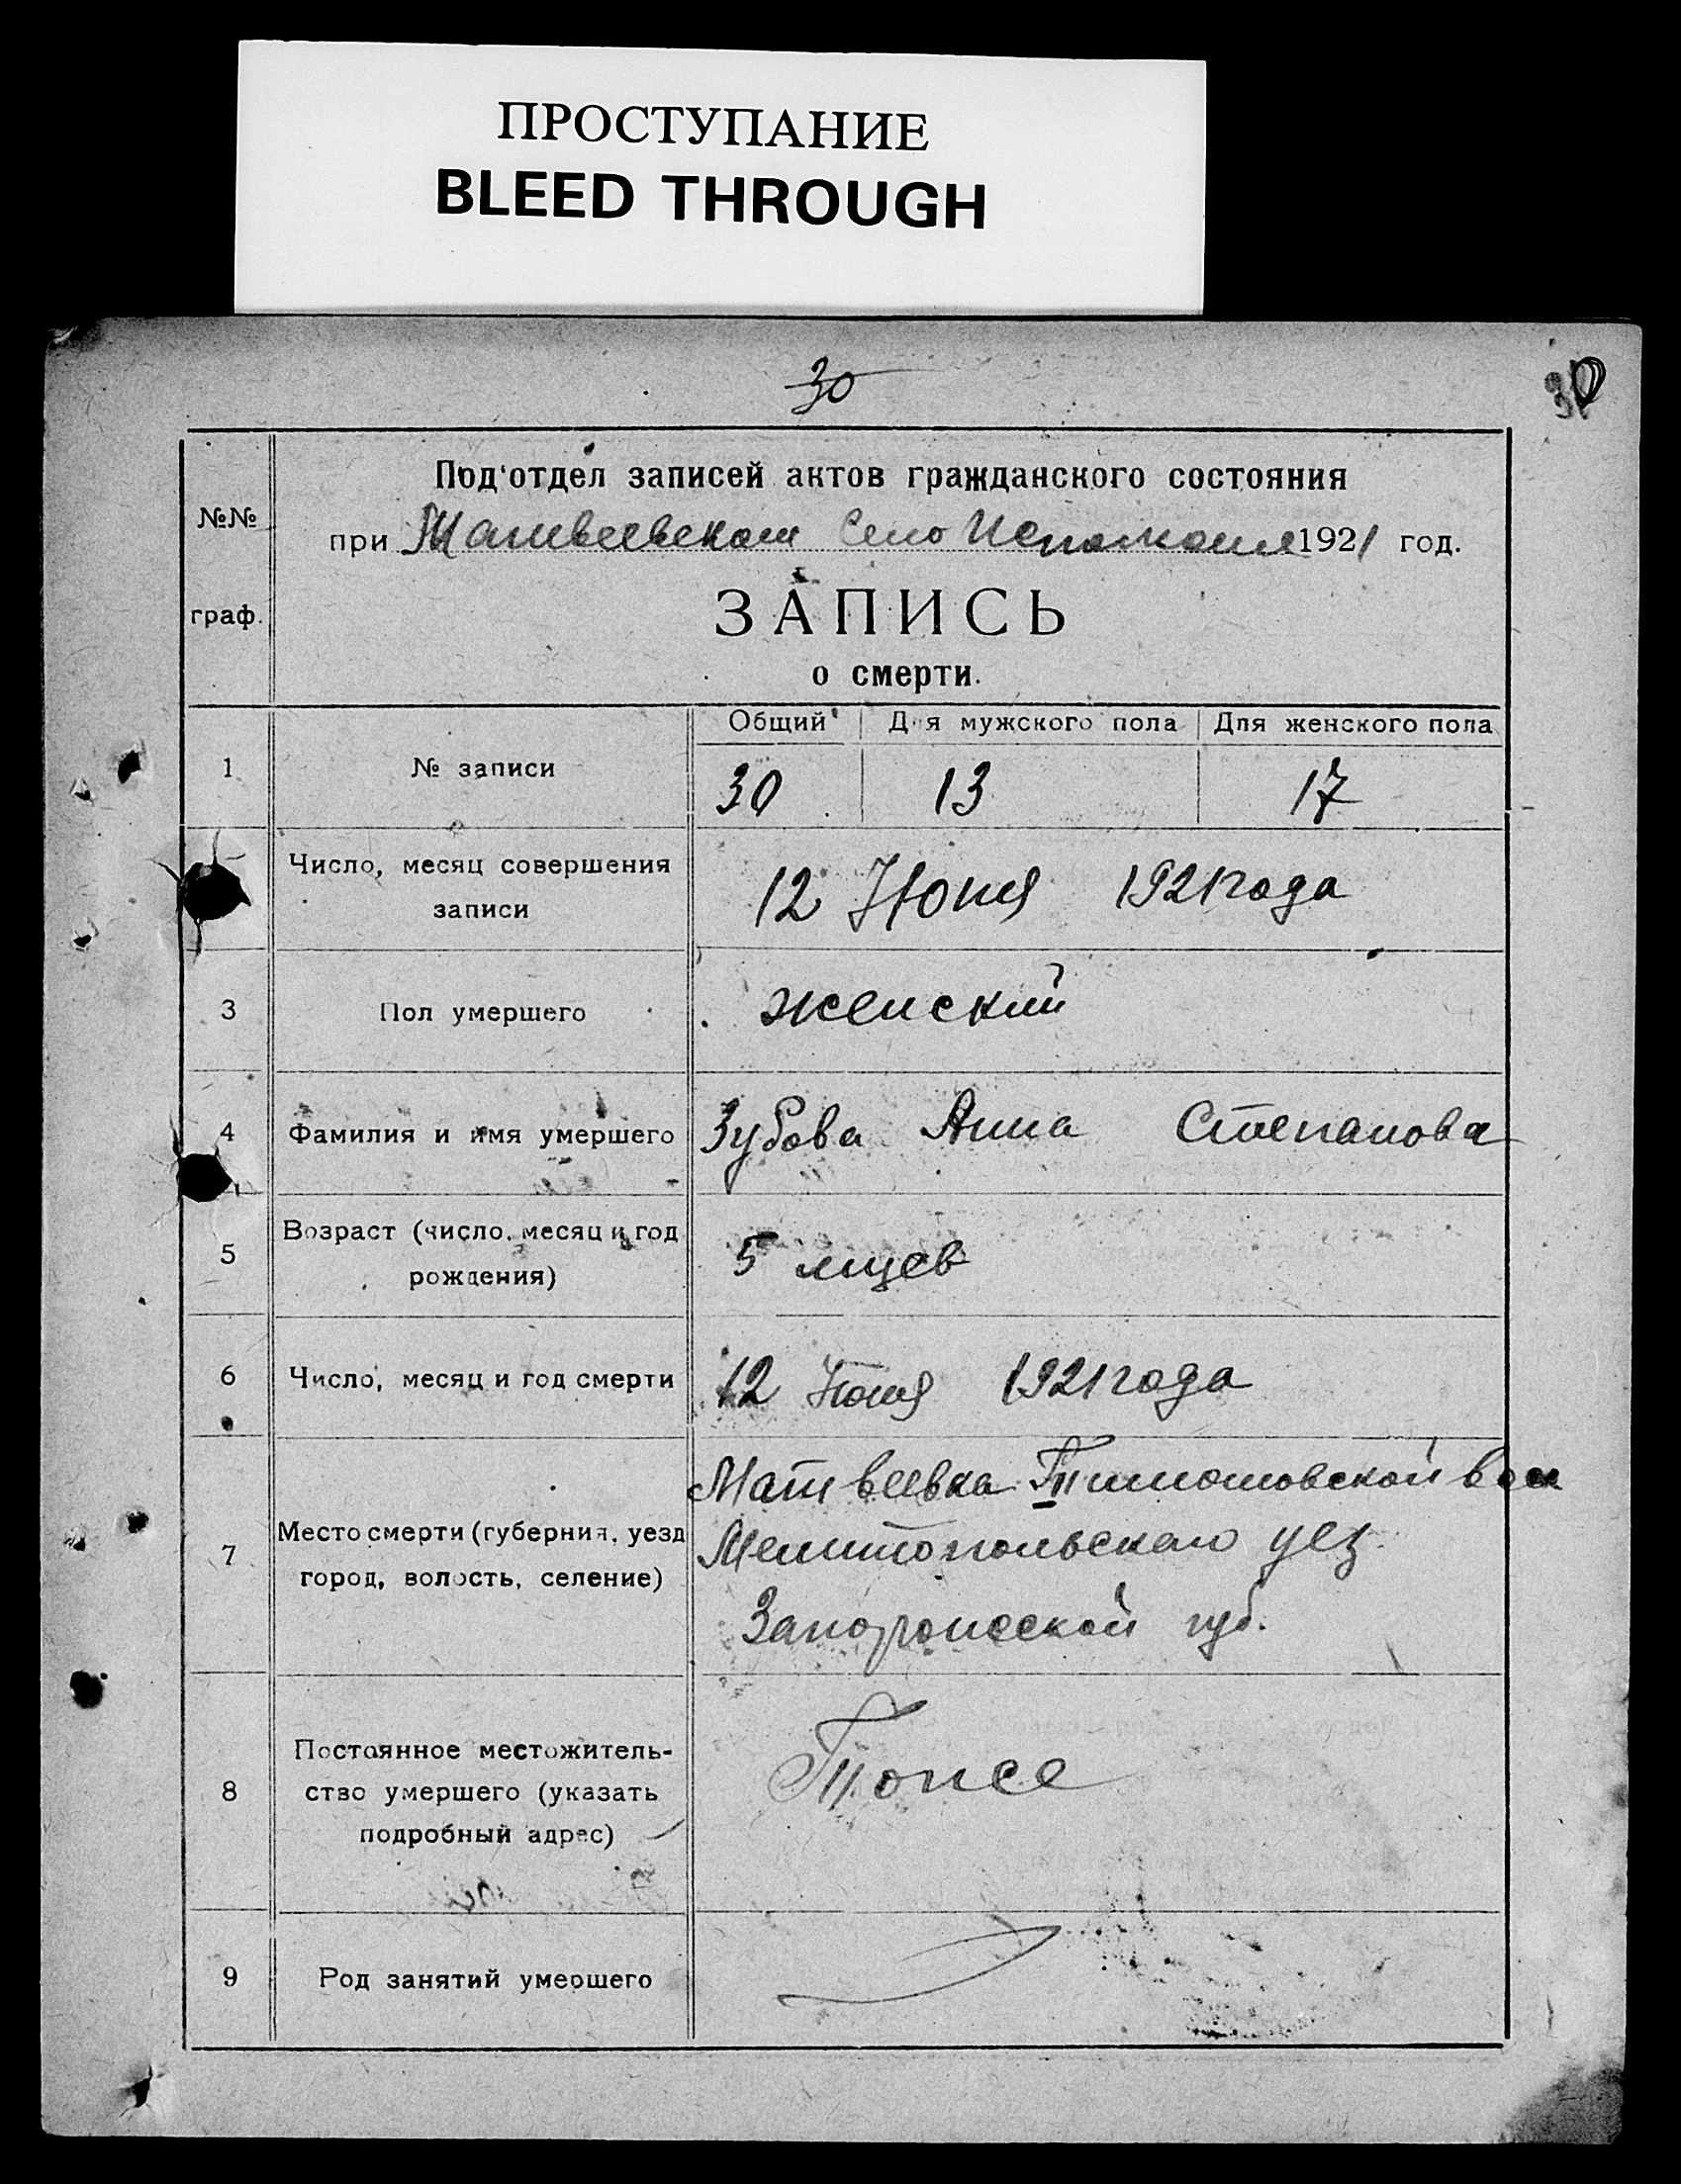 ПРОСТУПАНИЕ
BLEED THROUGH
30
30
Под'отдел записей актов гражданского состояния
№№
при Матвеевском Село Исполкоме 1921 год.
граф.
ЗАПИСЬ
о смерти.
Общий Для мужского пола Для женского пола
1 № записи 30 13 17
Число, месяц совершения
записи
12 Июня 1921 года
3 Пол умершего женский
4 Фамилия и имя умершего Зубова Анна Степанова
Возраст (число, месяц и год
5 рождения)
5 мцев
6 Число, месяц и год смерти 12 Июня 1921 года
Матвеевка Тимошовской вол
7 Место смерти (губерния, уезд
город, волость, селение)
Мелитопольского уез.
Запорожской губ.
Постоянное местожитель-
8 ство умершего (указать
подробный адрес)
Тоже
9 Род занятий умершего